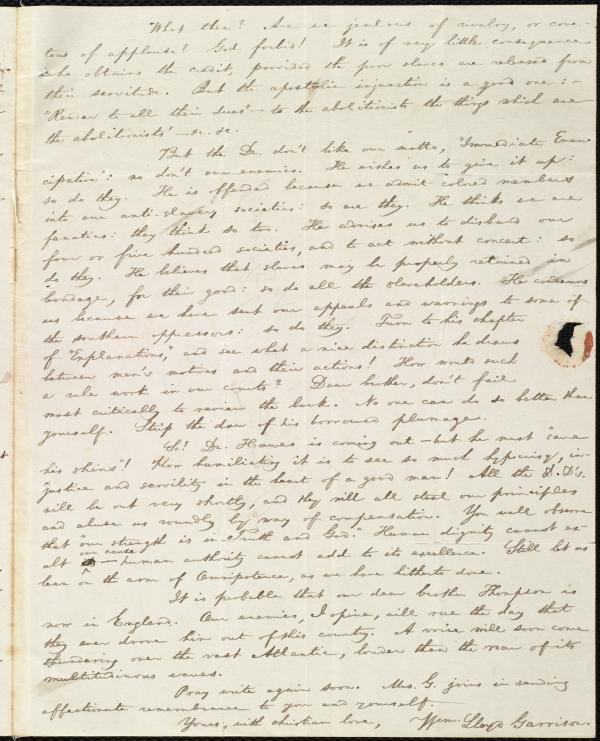 What then? Are we jealous of rivalry, or cove-
tous of applause? God forbid! It is of very little consequence
who obtains the credit, provided the poor slaves are released from
their servitude. But the apostolic injunction is a good one:—
"Render to all their dues"—to the abolitionists the things which are
the abolitionists'—&c. &c.
But the Dr. don't like our motto, "Immediate Eman-
cipation": no don't our enemies. He wishes us to give it up:
so do they. He is offended because we admit colored members
into our anti-slavery societies: so are they. He thinks we are
fanatics: they think so too. He advises us to disband our
four or five hundred societies, and to act without concert: so
do they. He believes that slaves may be properly retained in
bondage, for their good: so do all the slaveholders. He condemns
us because we have sent our appeals and warnings to some of
the southern oppressors: so do they. Turn to his chapter
of "Explanations," and see what a nice distinction he draws
between men's motives and their actions! How would such
a rule work in our courts? Dear brother, don't fail
most critically to review the book. No one can do so better than
yourself. Strip the daw of his borrowed plumage.
So! Dr. Hawes is coming out—but he must "save
his skins"! How humiliating it is to see so much hypocrisy, in-
justice and servility in the heart of a good man! All the D.D's.
will be out very shortly, and they will all steal our principles
and abuse us roundly by way of compensation. You will observe
that "our strength is in Truth and God." Human dignity cannot ex-
alt our cause—human authority cannot add to its excellence. Still let us
lean on the arm of Omnipotence, as we have hitherto done.
It is probable that our dear brother Thompson is
now in England. Our enemies, I opine, will rue the day that
they ever drove him out of this country. A voice will soon come
thundering over the vast Atlantic, louder than the roar of its
multitudinous waves.
Pray write again soon. Mrs. G. joins in sending
affectionate remembrance to you and yourself.
Yours, with christian love, Wm. Lloyd Garrison.